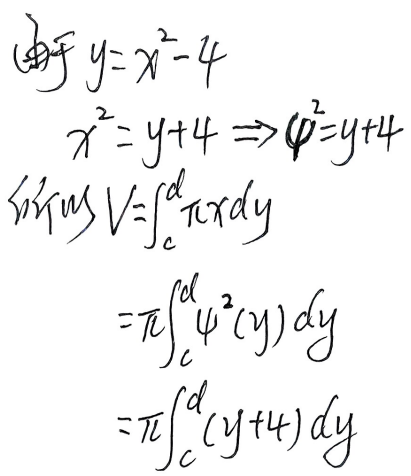 由于 y=x²-4
x²=y+4 ⇒ φ²=y+4
所以 V=∫_c^d πxdy
=π∫_c^d ψ²(y)dy
=π∫_c^d (y+4)dy